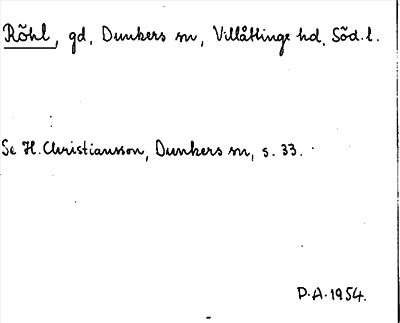 Röhl, gd, Dunkers sn, Villåttinge hd, Söd. l.
Se H. Christiansson, Dunkers sn, s. 33.
D.A. 1954.